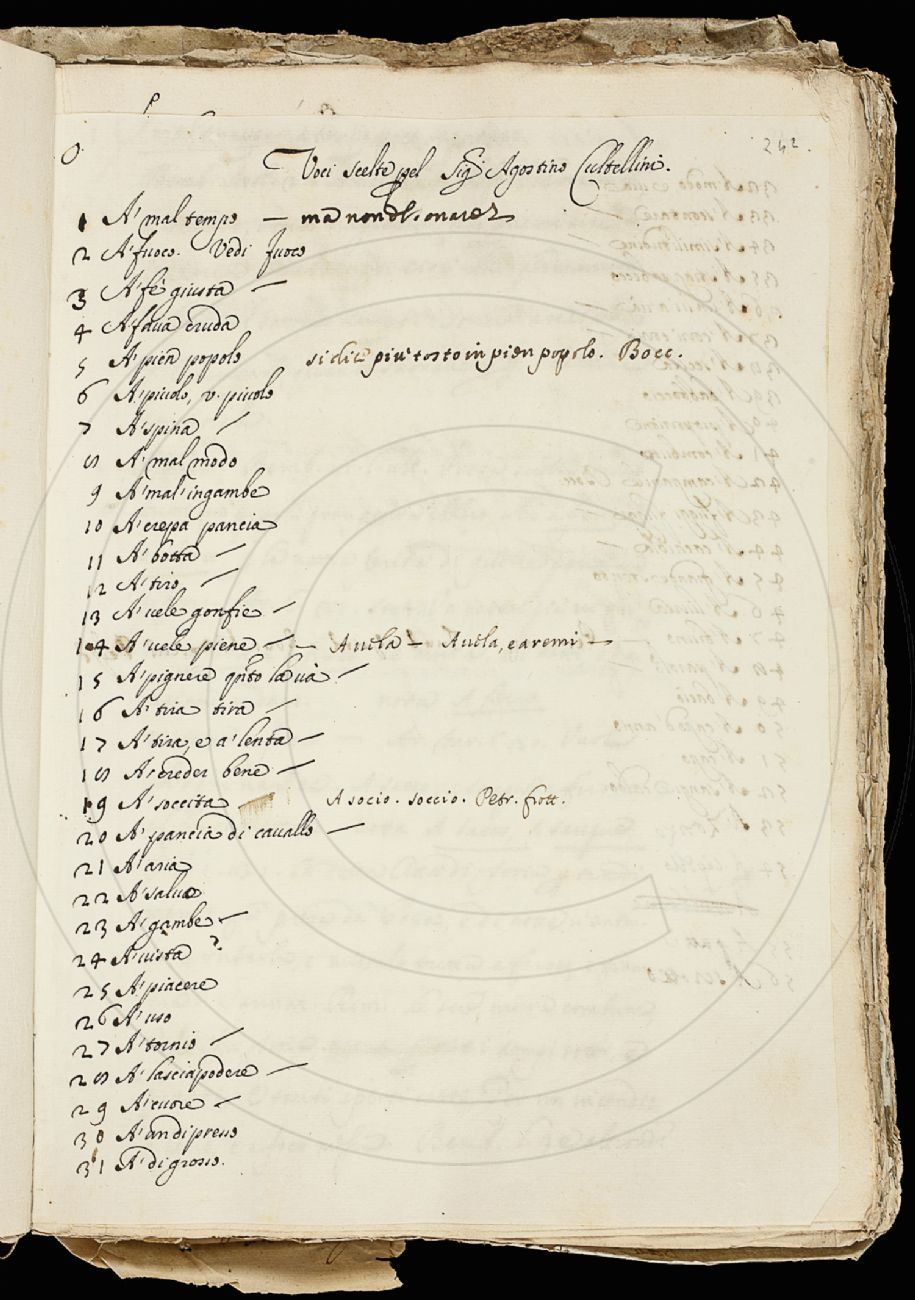 242.
Voci scelte pel Sig.r Agostino Coltellini.
1 A' mal tempo —
2 A' fuoco. Vedi fuoco
3 A' fè giusta —
4 A' fava cruda
5 A' pien popolo si dice più tosto in pien popolo. Bocc.
6 A' piuolo, v. piuolo
7 A' spina —
8 A' mal modo
9 A' mal' ingambe
10 A' crepa pancia
11 A' botta —
12 A' tiro —
13 A' vele gonfie —
14 A' vele piene — — A vela — A vela, e a remi —
15 A' pignere q.nto la và —
16 A' tira tira —
17 A' tira, e a' lenta —
18 A' creder bene —
19 A' soccita A socio. soccio. Petr. frott.
20 A' pancia di cavallo —
21 A' aria
22 A' salva
23 A' gambe —
24 A' vista ?
25 A' piacere
26 A' uso
27 A' tornio —
28 A' lasciapodere —
29 A' cuore —
30 A' un di presso
31 A' di grosso.